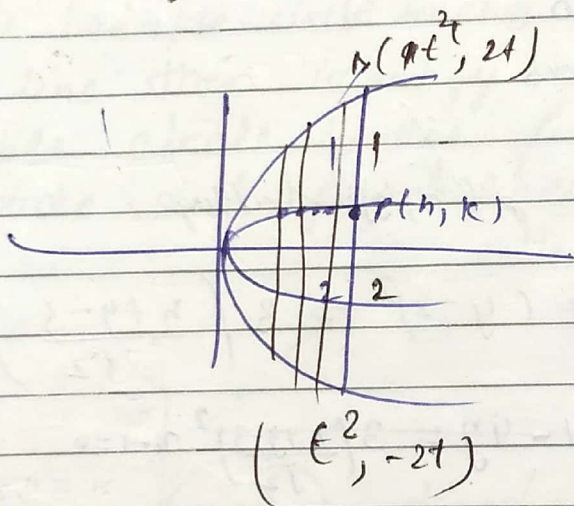 A(t², 2t)
1 1
P(h, k)
2 2
(t², -2t)